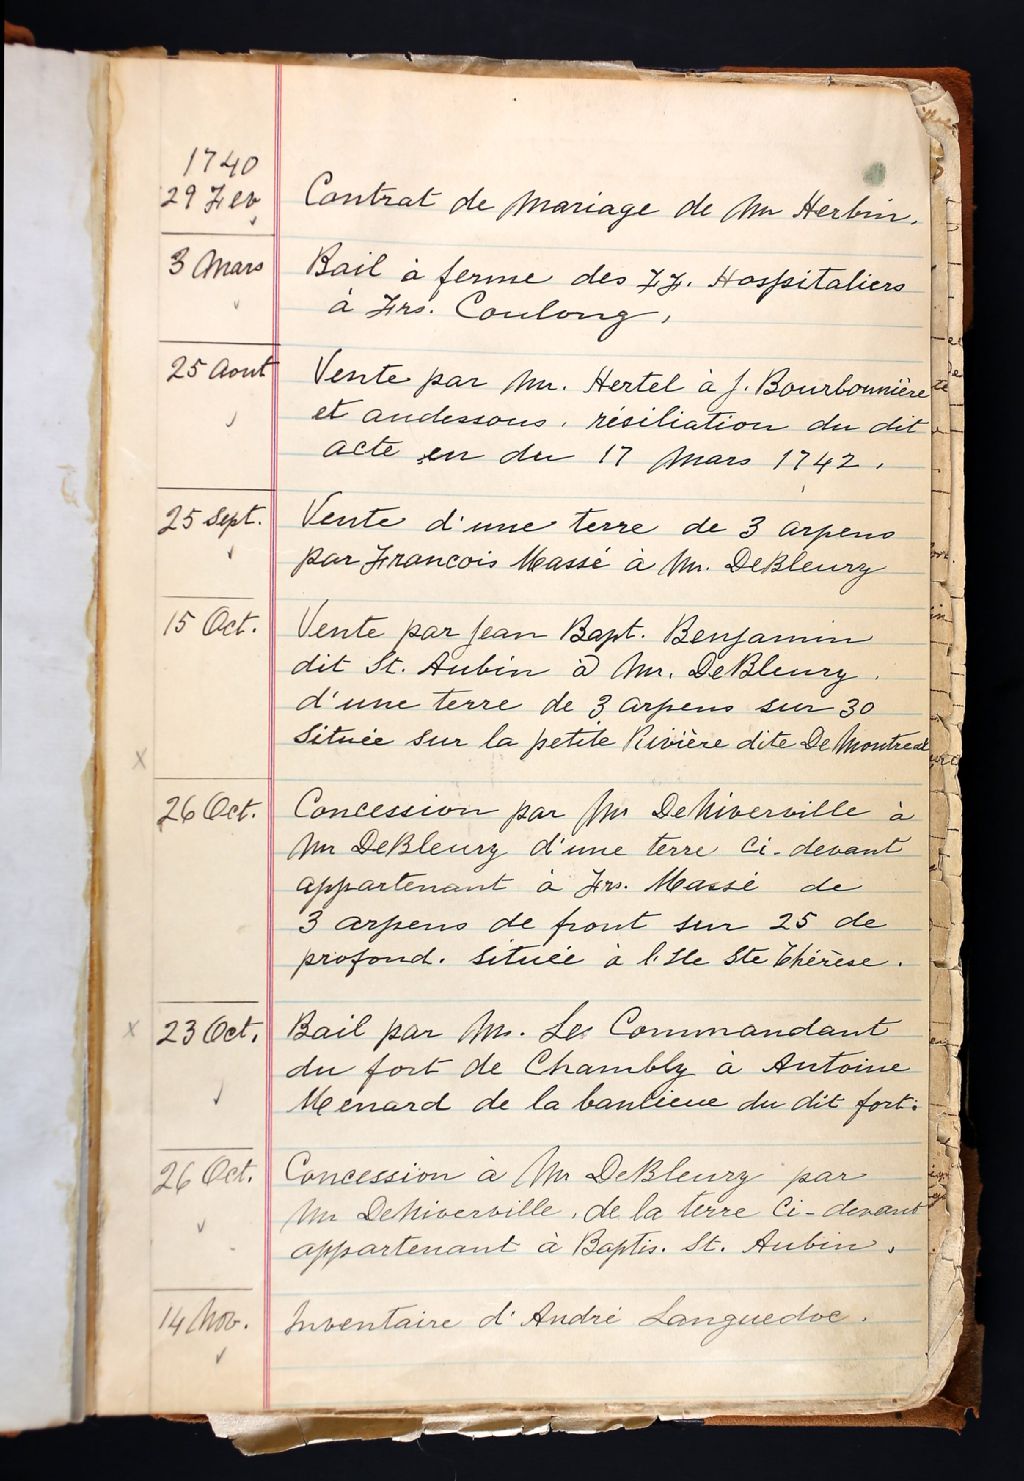 1740
29 Fev Contrat de Mariage de Mr Herbin.
3 Mars Bail à ferme des FF. Hospitaliers
à Frs. Coulong,
25 Aout Vente par Mr. Hertel à J. Bourbonnière
et audessous, résiliation du dit
acte en du 17 Mars 1742.
25 Sept. Vente d'une terre de 3 arpens
par Francois Massé à Mr. DeBleury
15 Oct. Vente par Jean Bapt. Benjamin
dit St. Aubin à Mr. DeBleury.
d'une terre de 3 arpens sur 30
Située sur la petite Rivière dite De Montreal
X
26 Oct. Concession par Mr DeNiverville à
Mr DeBleury d'une terre Ci-devant
appartenant à Frs. Massé de
3 arpens de front sur 25 de
profond. Située à l'Ile Ste Thérèse.
X 23 Oct. Bail par Mr. Le Commandant
du fort de Chambly à Antoine
Menard de la banlieue du dit fort.
26 Oct. Concession à Mr DeBleury par
Mr DeNiverville, de la terre Ci-devant
appartenant à Baptis. St. Aubin.
14 Nov. Inventaire d'André Languedoc.